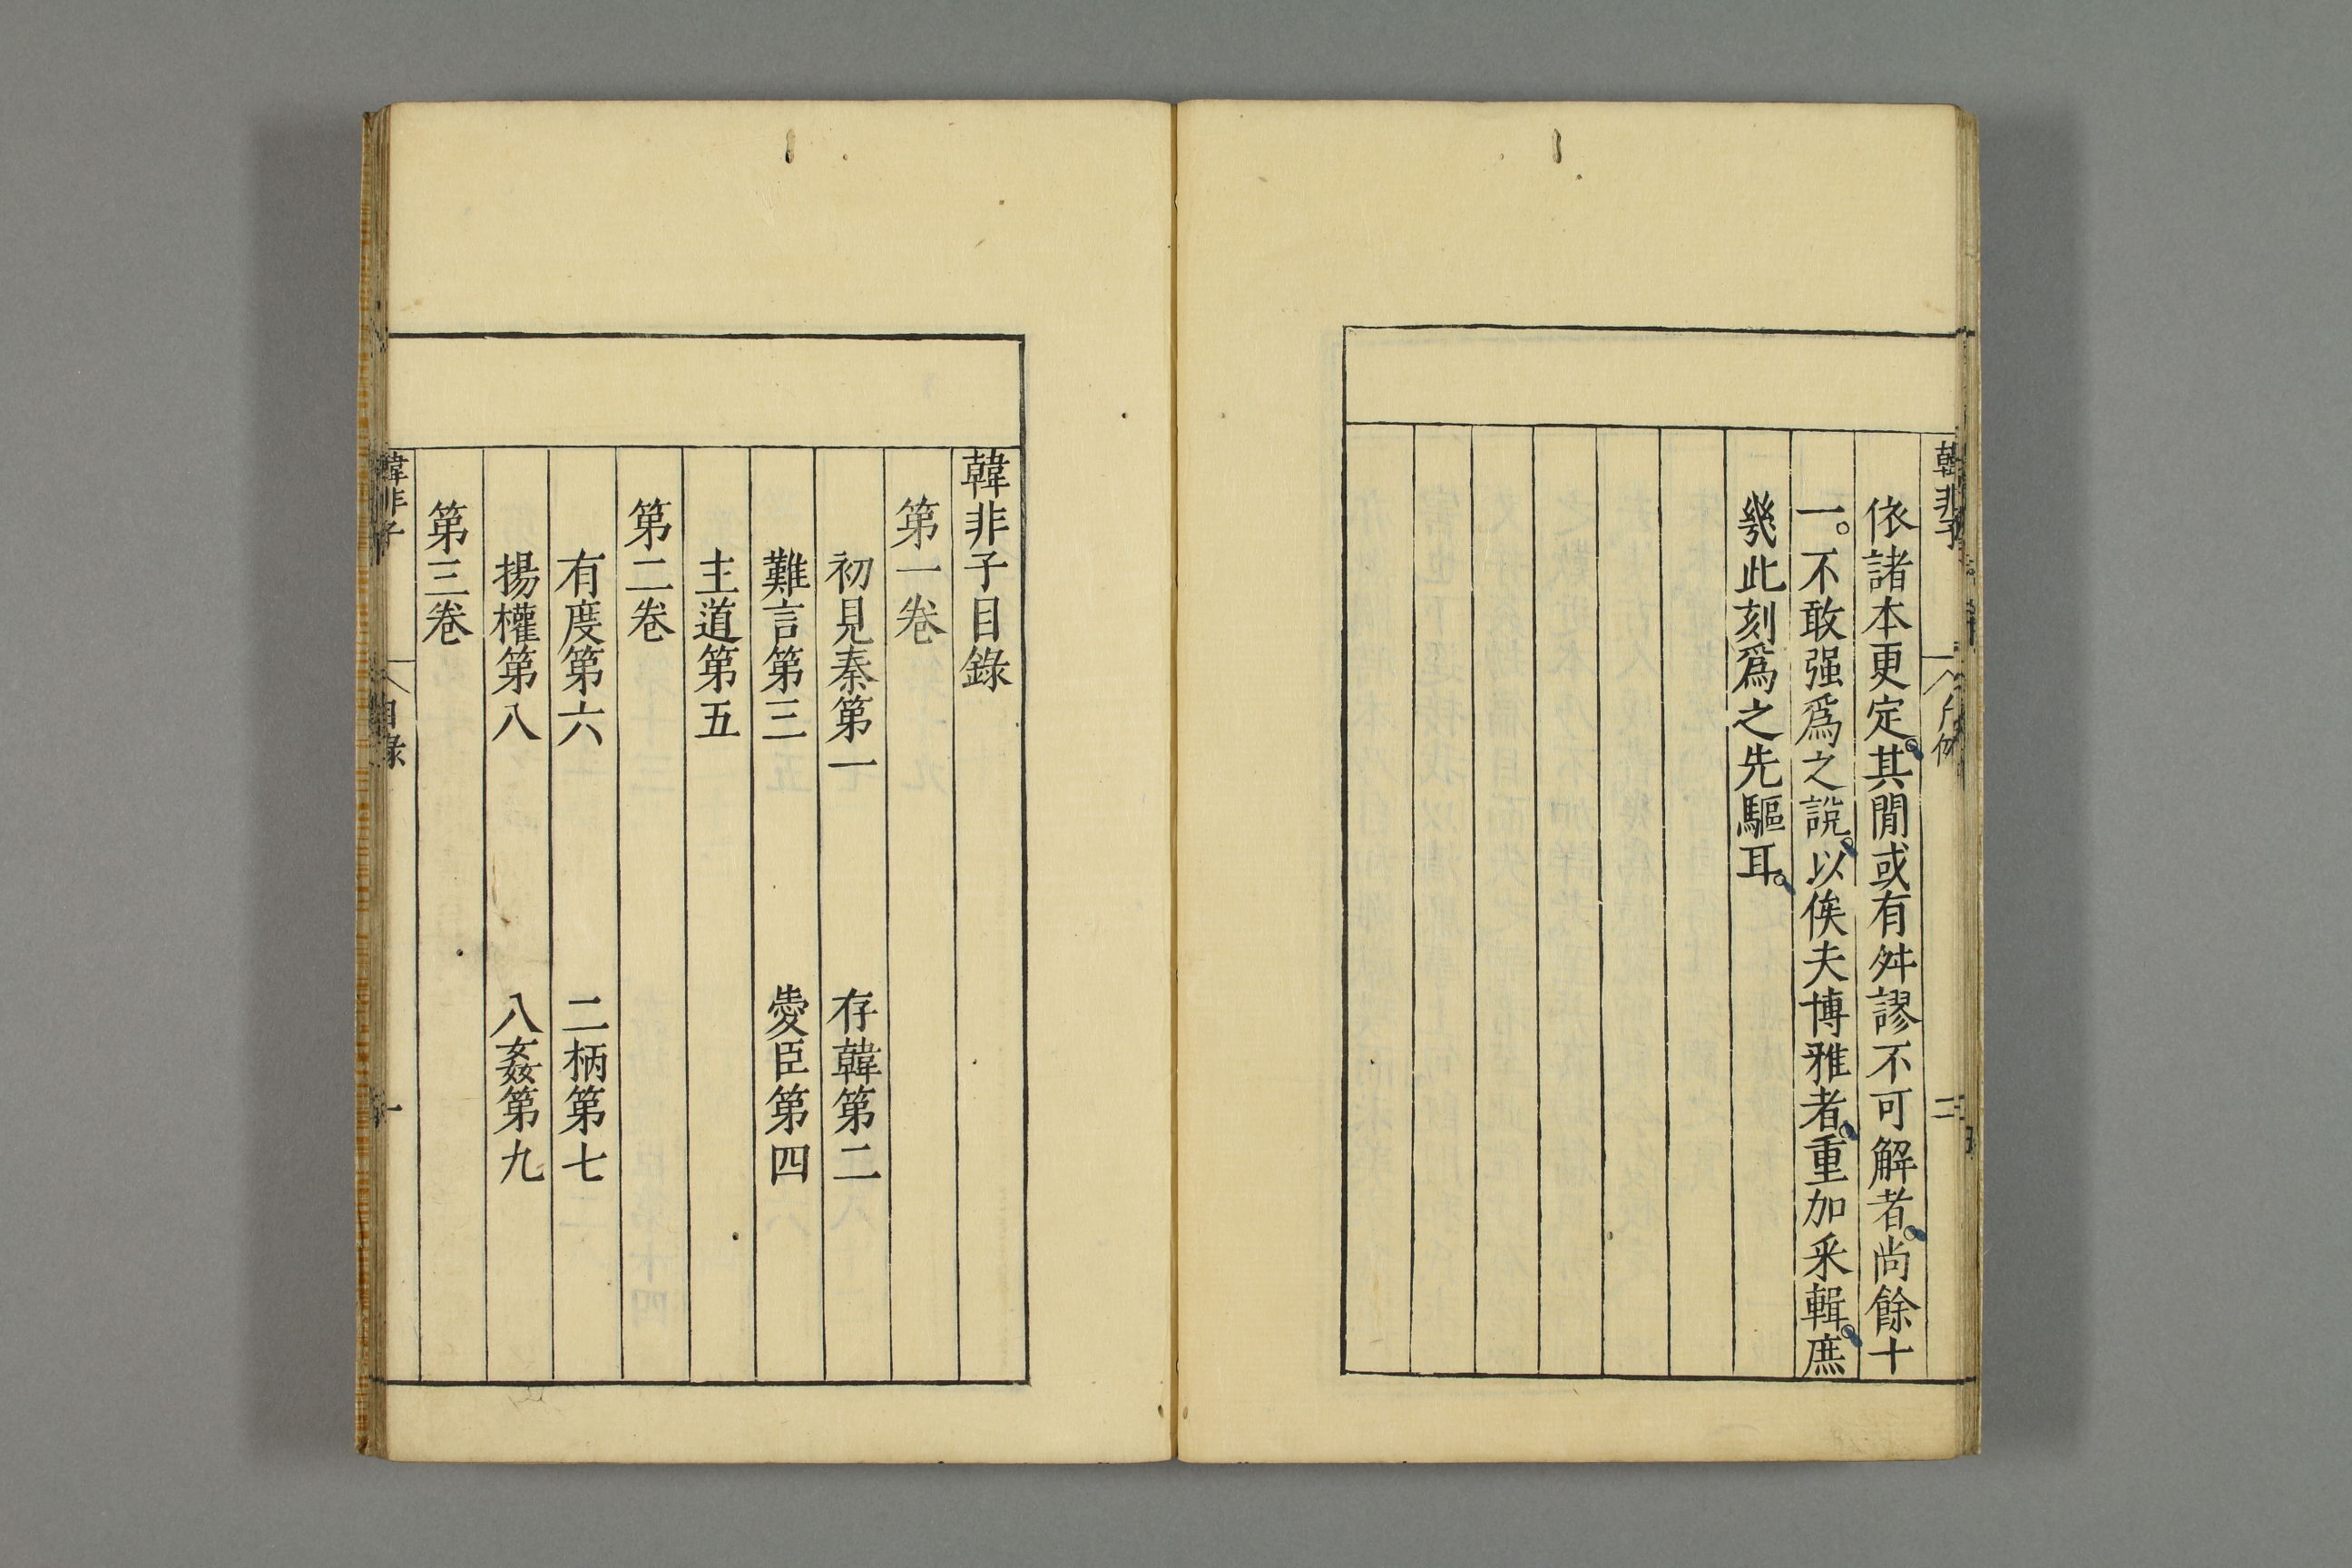 韓非子
凡例
二
依諸本更定。其閒或有舛謬不可解者。尚餘十
一。不敢强爲之說。以俟夫博雅者。重加采輯。庶
幾此刻爲之先驅耳。
韓非子目錄
第一卷
初見秦第一 存韓第二
難言第三 愛臣第四
主道第五
第二卷
有度第六 二柄第七
揚權第八 八姦第九
第三卷
韓非子
目錄
一